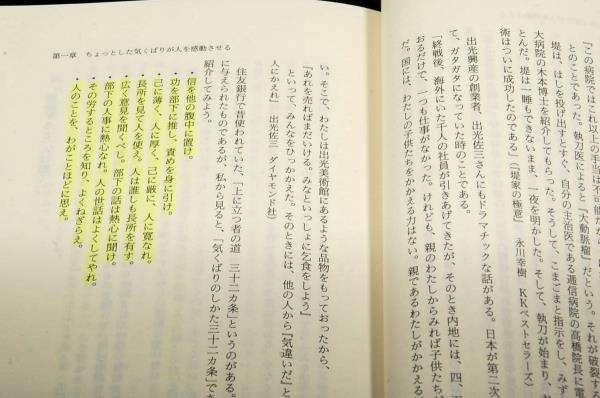 「この病院ではこれ以上の手当は不可能だ
とのことであった。執刀医によると「大動脈瘤」だという。それが破裂する
堤は、はしを投げ出すとすぐ、自分の主治医である逓信病院の高橋院長に電
大病院の木本博士を紹介してもらった。そうして、こまごまと指示をし、みず
とんだ。堤は一睡もできないまま、一夜を明かした。そして、執刀が始まり、
術はついに成功したのである」（『堤家の極意』 永川幸樹 KKベストセラーズ）
出光興産の創業者、出光佐三さんにもドラマチックな話がある。日本が第二次
て、ガタガタになっていた時のことである。
「終戦後、海外にいた千人の社員が引きあげてきたが、そのとき内地には、四、
おるだけで、一つも仕事がなかった。けれども、親のわたしからみれば子供たちが
だ。国には、わたしの子供たちをかかえる力はない。親であるわたしがかかえる
第一章 ちょっとした気くばりが人を感動させる
い。そこで、わたしは出光美術館にあるような品物をもっておったから、
『あれを売ればまだいける。みなといっしょに乞食をしよう』
といって、みんなをひっかかえた。そのときには、他の人から『気違いだ』と
人にかえれ』 出光佐三 ダイヤモンド社）
住友銀行で昔使われていた、「上に立つ者の道 三十二カ条」というのがある。
に与えられたものであるが、私から見ると、「気くばりのしかた三十二カ条」であ
紹介してみよう。
・信を他の腹中に置け。
・功を部下に推し、責めを身に引け。
・己に薄く、人に厚く、己に厳に、人に寛なれ。
・長所を見て人を使え。人は誰しも長所を有す。
・広く意見を聞くべし。部下の話は熱心に聞け。
・部下の人事に熱心なれ。人の世話はよくしてやれ。
・その労するところを知り、よくねぎらえ。
・人のことを、わがことほどに思え。